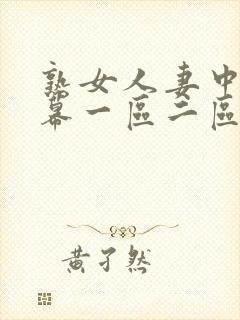 熟女人妻中
幕一區二區
黃孑然